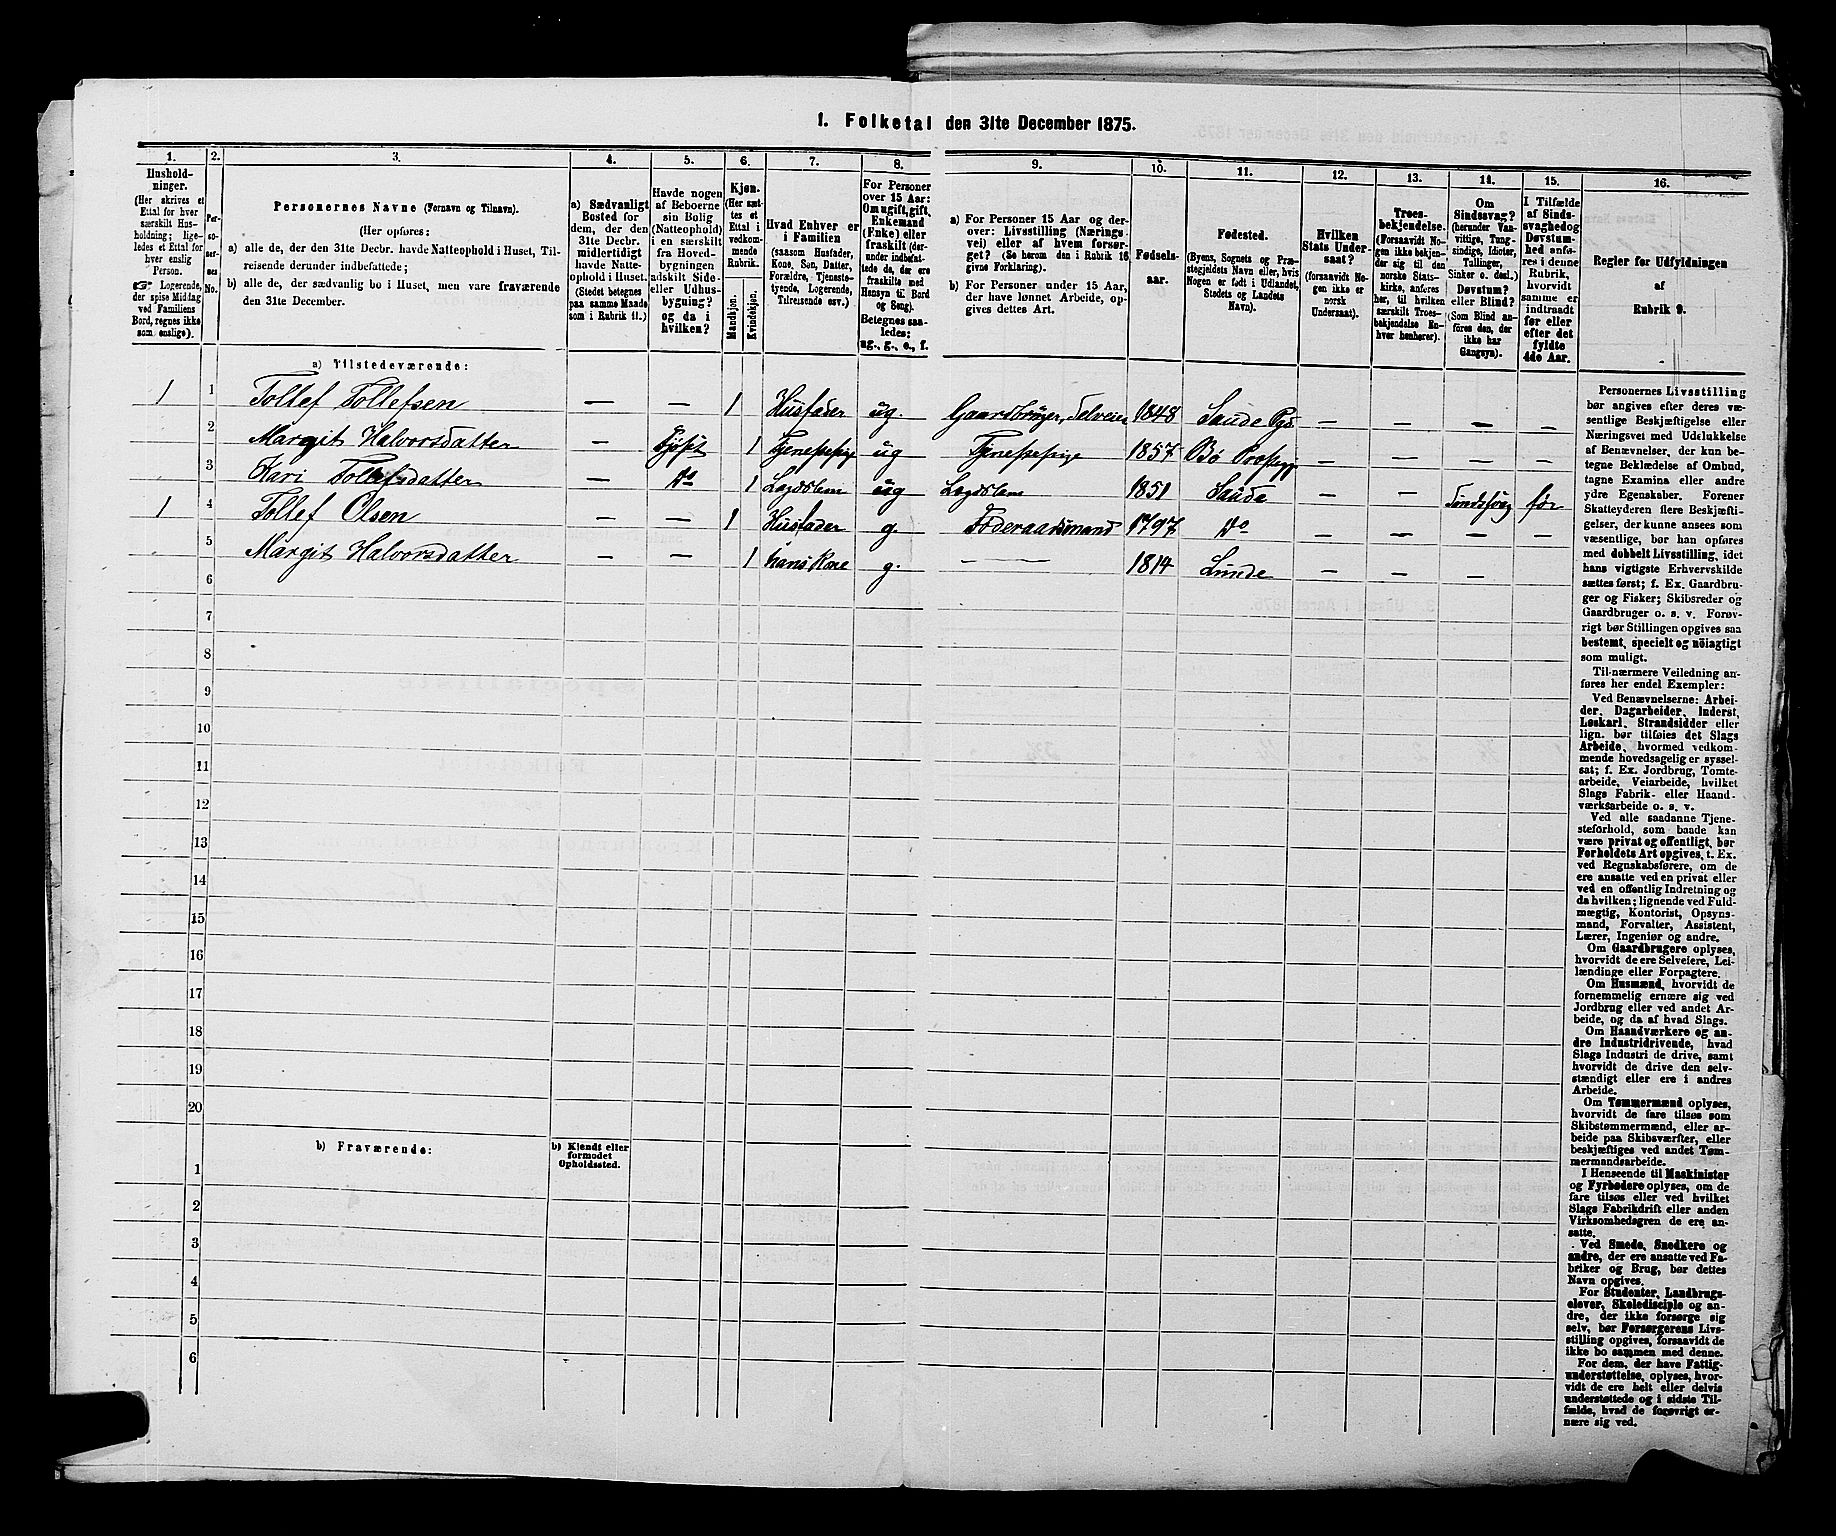 1. Folketal den 31te December 1875.
1. 2. 3. 4. 5. 6. 7. 8. 9. 10. 11. 12. 13. 14. 15. 16.
Hushold-
ninger.
(Her skrives et
Ettal for hver
særskilt Hus-
holdning; lige-
ledes et Ettal for
hver enslig
Person.
☞ Logerende,
der spise Middag
ved Familiens
Bord, regnes ikke
som enslige).
Per-
so-
ner-
nes
No.
Personernes Navne (Fornavn og Tilnavn).
(Her opføres:
a) alle de, der den 31te Decbr. havde Natteophold i Huset, Til-
reisende derunder indbefattede;
b) alle de, der sædvanlig bo i Huset, men vare fraværende
den 31te December.
a) Sædvanligt
Bosted for
dem, der den
31te Decbr.
midlertidigt
havde Natte-
ophold i Huset.
(Stedet betegnes
paa samme Maade
som i Rubrik 11.)
Havde nogen
af Beboerne
sin Bolig
(Natteophold)
i en særskilt
fra Hoved-
bygningen
adskilt Side-
eller Udhus-
bygning?
og da i
hvilken?
Kjøn.
(Her sæt-
tes et
Ettal i
vedkom-
mende
Rubrik.
Mandkjøn.
Kvindekjøn.
Hvad Enhver er
i Familien
(saasom Husfader,
Kone, Søn, Datter,
Forældre, Tjeneste-
tyende, Logerende,
Tilreisende osv.)
For Personer
over 15 Aar:
Om ugift, gift,
Enkemand
(Enke) eller
fraskilt (der-
under indbefat-
tede de, der ere
fraskilte med
Hensyn til Bord
og Seng).
Betegnes saa-
ledes:
ug., g., e., f.
a) For Personer 15 Aar og der-
over: Livsstilling (Nærings-
vei) eller af hvem forsør-
get? (Se herom den i Rubrik 16
givne Forklaring).
b) For Personer under 15 Aar,
der have lønnet Arbeide, op-
gives dettes Art.
Fødsels-
aar.
Fødested.
(Byens, Sognets og Præ-
stegjeldets Navn eller, hvis
Nogen er født i Udlandet,
Stedets og Landets
Navn).
Hvilken
Stats Under-
saat?
(forsaavidt No-
gen ikke er
norsk
Undersaat).
Troes-
bekjendelse.
(Forsaavidt No-
gen ikke bekjen-
der sig til den
norske Stats-
kirke, anføres
her, til hvilken
særskilt Troes-
bekjendelse En-
hver henhører).
Om
Sindssvag?
(herunder Van-
vittige, Tung-
sindige, Idioter,
Tullinger,
Sinker o. desl.)
Døvstum?
eller Blind?
(Som Blind an-
føres den, der
ikke har
Gangsyn).
I Tilfælde
af Sinds-
svaghed og
Døvstum-
hed anfø-
res i denne
Rubrik,
hvorvidt
samme er
indtraadt
før eller
efter det
fyldte
4de Aar.
Regler for Udfyldningen
af
Rubrik 9.
a) Tilstedeværende:
1 1 Tollef Tollefsen — — 1 Husfader ug. Gaardbruger, Selveier 1848 Saude Pgd — — — —
2 Margit Halvorsdatter — 1 Tjenestepige ug Tjenestepige 1857 Bø — — — —
3 Kari Tollefsdatter — Do 1 Lægdslem ug Lægdslem 1851 Saude — — Sindssvag før
1 4 Tollef Olsen — — 1 Husfader g Føderaadsmand 1797 Do — — — —
5 Margit Halvorsdatter — — 1 hans Kone g. — 1814 Lunde — — —
6
7
8
9
10
11
12
13
14
15
16
17
18
19
20
b) Fraværende:
b) Kjendt eller
formodet
Opholdssted.
1
2
3
4
5
6
Personernes Livsstilling
bør angives efter deres væ-
sentlige Beskjæftigelse eller
Næringsvei med Udelukkelse
af Benævnelser, der kun be-
tegne Beklædelse af Ombud,
tagne Examina eller andre
ydre Egenskaber. Forener
Skatteyderen flere Beskjæfti-
gelser, der kunne ansees som
væsentlige, bør han opføres
med dobbelt Livsstilling, idet
hans vigtigste Erhvervskilde
sættes først; f. Ex. Gaardbru-
ger og Fisker; Skibsreder og
Gaardbruger o. s. v. Forøv-
rigt bør Stillingen opgives saa
bestemt, specielt og nöiagtigt
som muligt.
Til nærmere Veiledning an-
føres her endel Exempler:
Ved Benævnelserne: Arbei-
der, Dagarbeider, Inderst,
Løskarl, Strandsidder eller
lign. bør tilføies det Slags
Arbeide, hvormed vedkom-
mende hovedsagelig er syssel-
sat; f. Ex. Jordbrug, Tomte-
arbeide, Veiarbeide, hvilket
Slags Fabrik- eller Haand-
værksarbeide o. s. v.
Ved alle saadanne Tjene-
steforhold, som baade kan
være privat og offentligt, bør
Forholdets Art opgives, t. Ex.
ved Regnskabsførere, om de
ere ansatte ved en privat eller
ved en offentlig Indretning og
da hvilken; lignende ved Fuld-
mægtig, Kontorist, Opsyns-
mand, Forvalter, Assistent,
Lærer, Ingeniør og andre.
Om Gaardbrugere oplyses,
hvorvidt de ere Selveiere, Lei-
lændinge eller Forpagtere.
Om Husmænd, hvorvidt de
fornemmelig ernære sig ved
Jordbrug eller ved andet Ar-
beide, og da af hvad Slags.
Om Haandværkere og an-
dre Industridrivende, hvad
Slags Industri de drive, samt
hvorvidt de drive den selv-
stændigt eller ere i andres
Arbeide.
Om Tømmermænd oplyses,
hvorvidt de fare tilsøs som
Skibstømmermænd, eller ar-
beide paa Skibsværfter, eller
beskjæftiges ved andet Tøm-
mermandsarbeide.
I Henseende til Maskinister
og Fyrbødere oplyses, om de
fare tilsøs eller ved hvilket
Slags Fabrikdrift eller anden
Virksomhedsgren de ere an-
satte.
Ved Smede, Snedkere og
andre, der ere ansatte ved Fa-
briker og Brug, bør dettes
Navn opgives.
For Studenter, Landbrugs-
elever, Skoledisciple og an-
dre, der ikke forsørge sig
selv, bør Forsørgerens Livs-
stilling opgives, forsaavidt de
ikke bo sammen med denne.
For dem, der have Fattig-
understøttelse, oplyses, hvor-
vidt de ere helt eller delvis
understøttede og i sidste Til-
fælde, hvad de forøvrigt er-
nære sig ved.